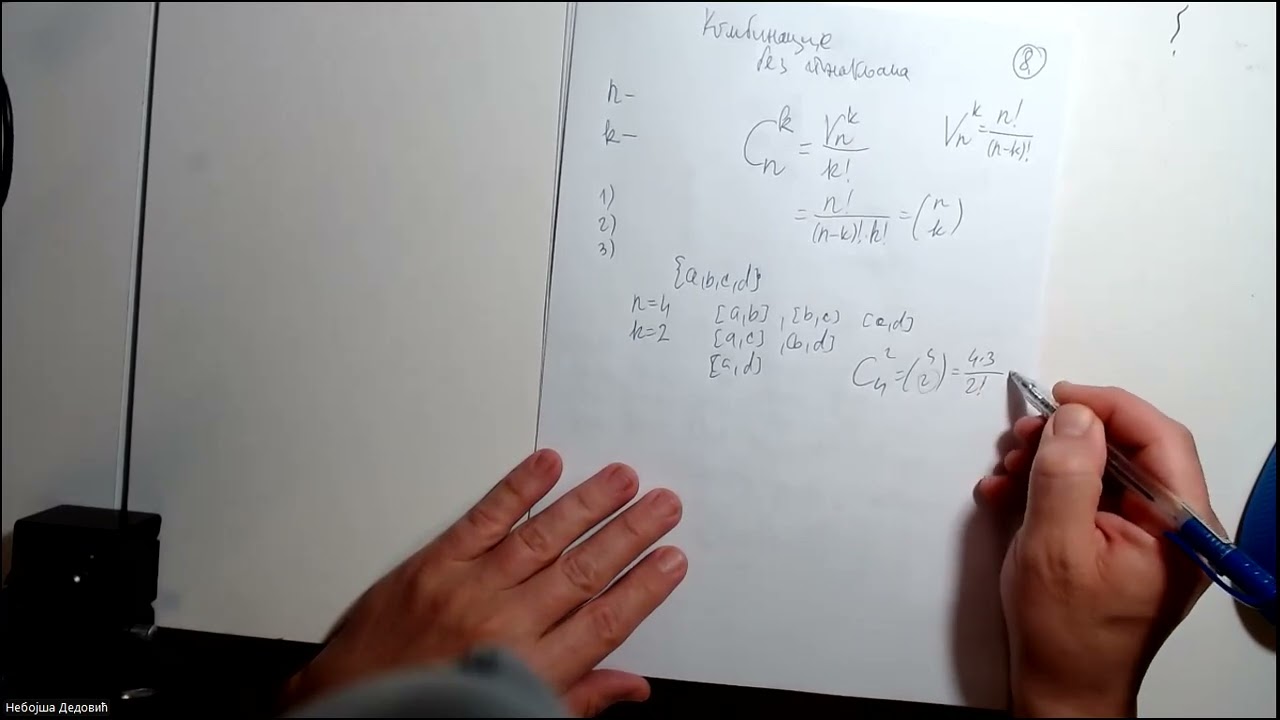 Комбинације
без понављања
8
n-
k-
C_n^k = V_n^k / k!
V_n^k = n! / (n-k)!
1)
2)
3)
= n! / (n-k)!·k! = (n k)
{a,b,c,d}
n=4 [a,b] , [b,c] [c,d]
k=2 [a,c] , [b,d]
[a,d]
C_4^2 = (4 2) = 4·3 / 2!
Небојша Дедовић